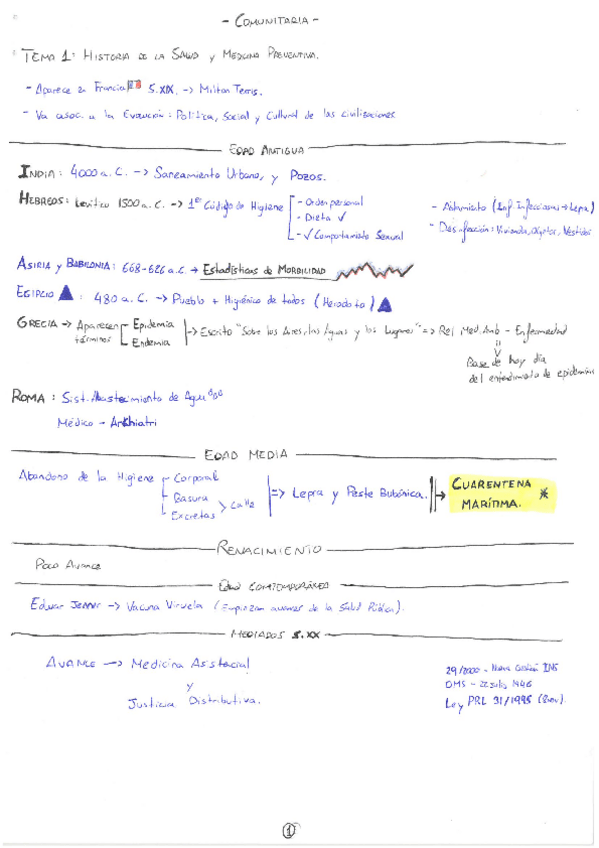 - COMUNITARIA -
TEMA 1: HISTORIA DE LA SALUD Y MEDICINA PREVENTIVA.
- Aparece en Francia S.XIX. -> Milton Terris.
- Va asoc. a la Evolución: Política, Social y Cultural de las civilizaciones
EDAD ANTIGUA
INDIA: 4000 a.C. -> Saneamiento Urbano, y Pozos.
HEBREOS: Levítico 1500 a.C. -> 1er Código de Higiene
- Orden personal
- Dieta ✓
- ✓ Comportamiento Sexual
- Aislamiento (Enf. Infecciosas -> Lepra)
- Desinfección: Vivienda, Objetos, Vestidos
ASIRIA Y BABILONIA: 668-626 a.C. -> Estadísticas de MORBILIDAD
EGIPCIO: 480 a.C. -> Pueblo + Higiénico de todos (Herodoto)
GRECIA -> Aparecen términos
Epidemia
Endemia
-> Escrito "Sobre los Aires, las Aguas y los Lugares" => Rel. Med. Amb - Enfermedad
Base de hoy día
del entendimiento de epidemias
ROMA: Sist. Abastecimiento de Agua
Médico - Arkhiatri
EDAD MEDIA
Abandono de la Higiene
- Corporal
- Basura
- Excretas
> Calle
=> Lepra y Peste Bubónica.
-> CUARENTENA MARÍTIMA. *
RENACIMIENTO
Poco Avance
EDAD CONTEMPORÁNEA
Eduar Jenner -> Vacuna Viruela (Empiezan avances de la Salud Pública).
MEDIADOS S.XX
AVANCE -> Medicina Asistencial
y
Justicia Distributiva.
29/2000 - Nueva Gestión INS
OMS - 22 Julio 1946
Ley PRL 31/1995 (8nov).
1